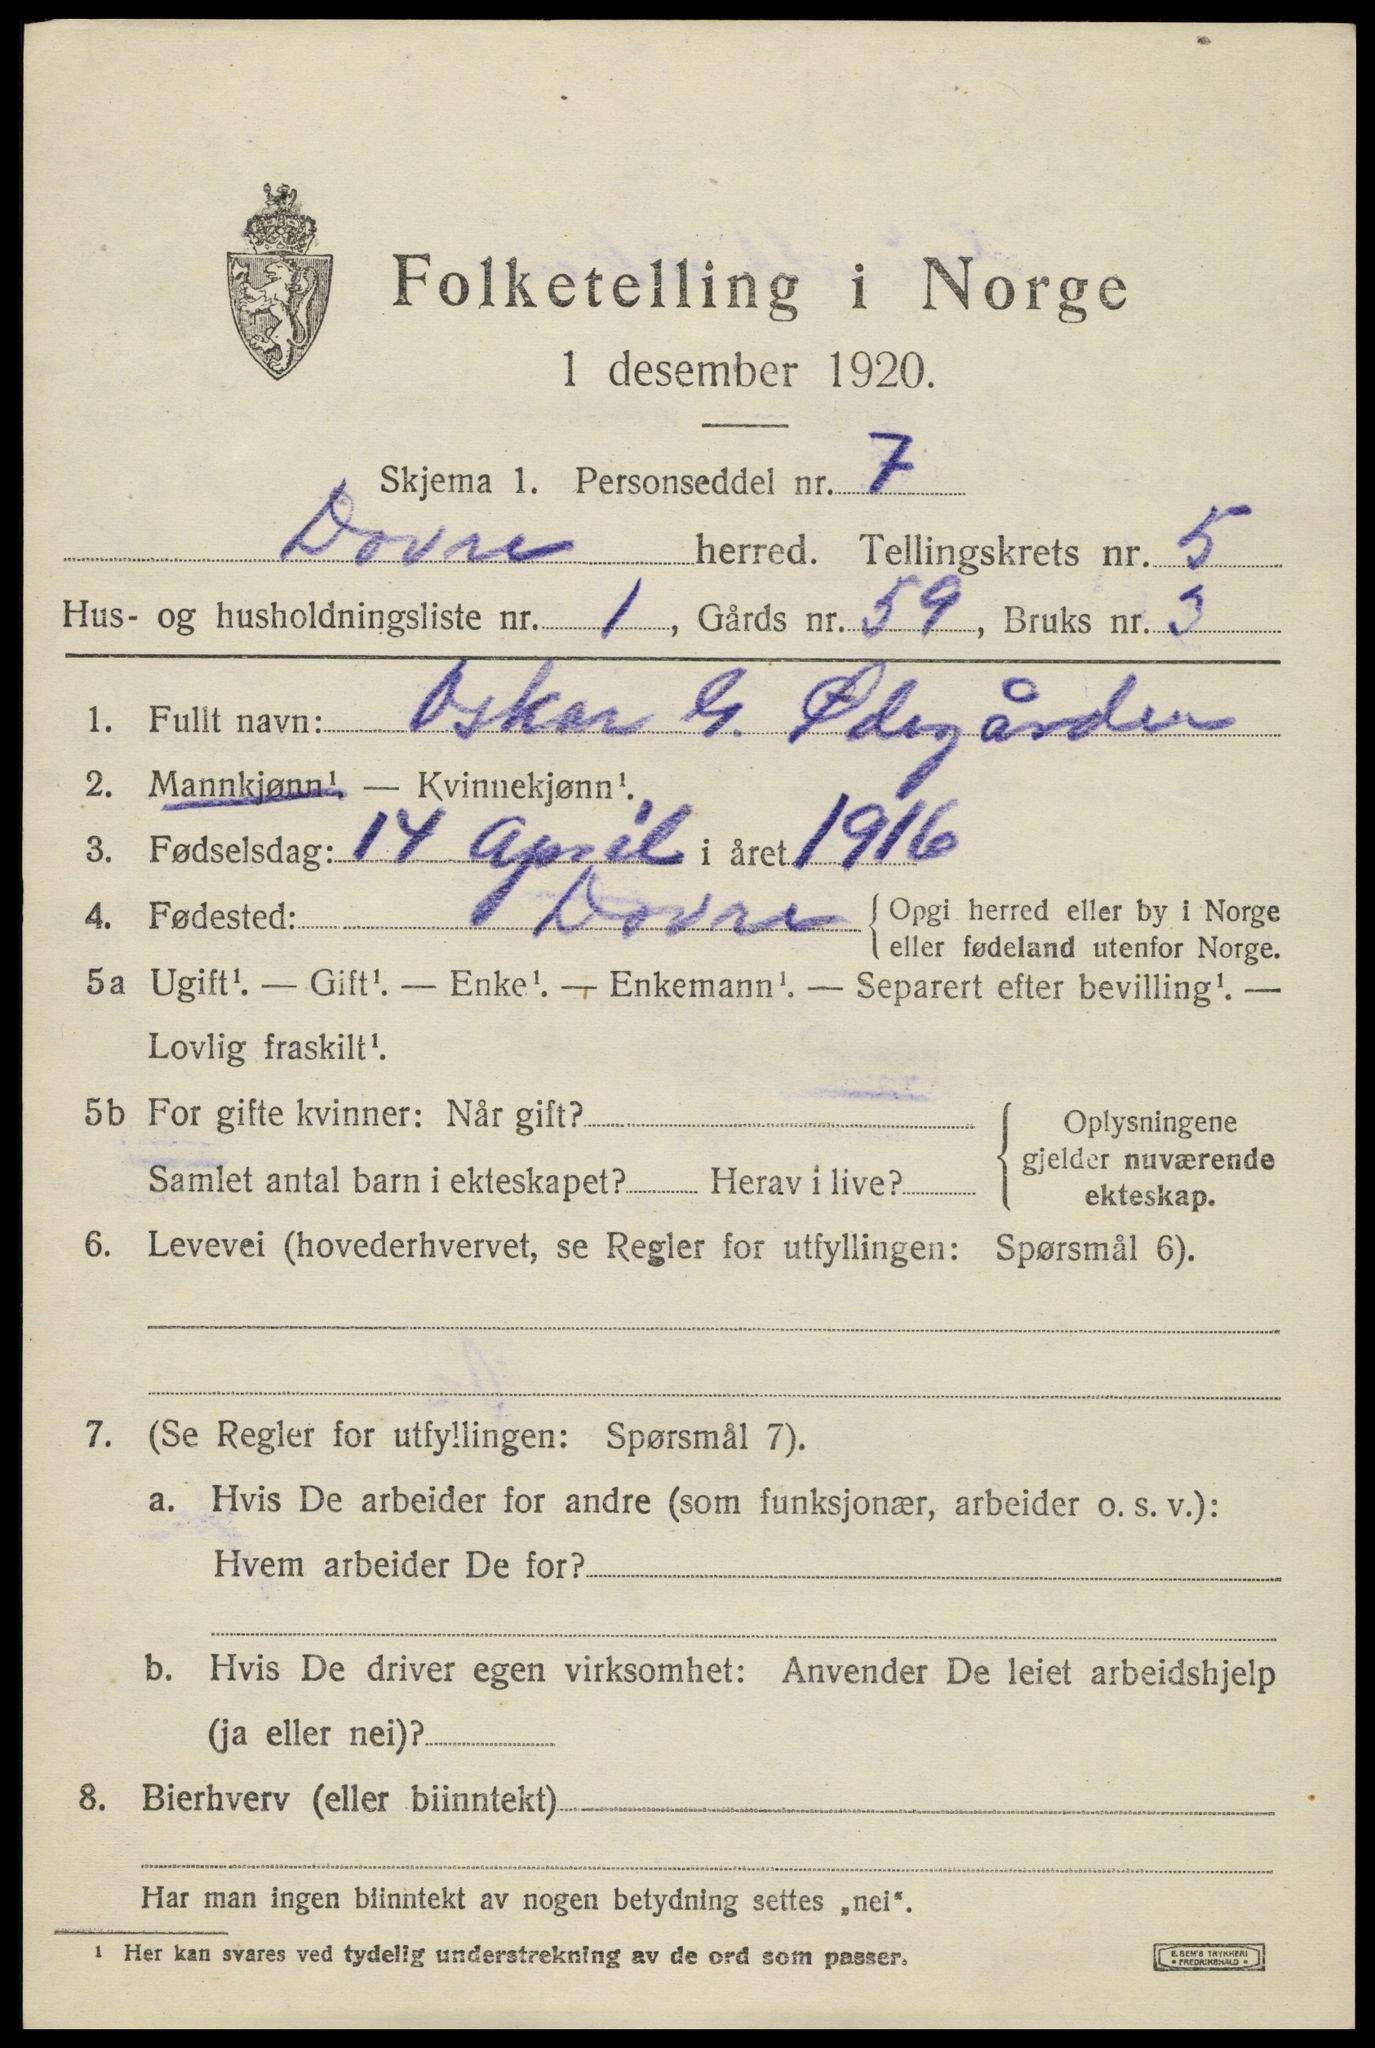 Folketelling i Norge
1 desember 1920.
Skjema 1. Personseddel nr. 7
Dovre herred. Tellingskrets nr. 5
Hus- og husholdningsliste nr. 1, Gårds nr. 59, Bruks nr. 3
1. Fullt navn: Oskar G. Ødegården
2. Mannkjønn¹. — Kvinnekjønn¹.
3. Fødselsdag: 14 April i året 1916
4. Fødested: Dovre {Opgi herred eller by i Norge
eller fødeland utenfor Norge.
5a Ugift¹. — Gift¹. — Enke¹. — Enkemann¹. — Separert efter bevilling¹. —
Lovlig fraskilt¹.
5b For gifte kvinner: Når gift?
Samlet antal barn i ekteskapet? Herav i live?
{Oplysningene
gjelder nuværende
ekteskap.
6. Levevei (hovederhvervet, se Regler for utfyllingen: Spørsmål 6).
7. (Se Regler for utfyllingen: Spørsmål 7).
a. Hvis De arbeider for andre (som funksjonær, arbeider o. s. v.):
Hvem arbeider De for?
b. Hvis De driver egen virksomhet: Anvender De leiet arbeidshjelp
(ja eller nei)?
8. Bierhverv (eller biinntekt)
Har man ingen biinntekt av nogen betydning settes „nei“.
¹ Her kan svares ved tydelig understrekning av de ord som passer.
E. SEM'S TRYKKERI
• FREDRIKSHALD •